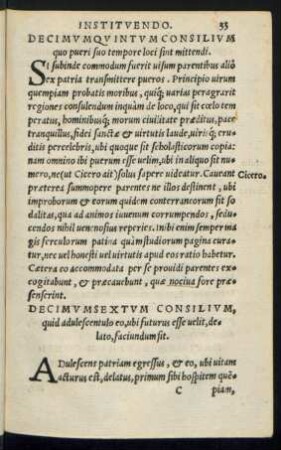 INSTITVENDO. 33
DECIMVMQVINTVM CONSILIVM
quo pueri suo tempore loci sint mittendi.
SI subinde commodum fuerit uisum parentibus aliò
ex patria transmittere pueros. Principio uirum
quempiam probatis moribus, quiq́; uarias peragrarit
regiones consulendum inquàm de loco, qui sit cœlo tem
peratus, hominibusq́; morum ciuilitate præditus, pace
tranquillus, fidei sanctæ & uirtutis laude, uirisq́; eru
ditis percelebris, ubi quoque sit scholasticorum copia:
nam omnino ibi puerum esse uelim, ubi in aliquo sit nu
mero, ne (ut Cicero ait) solus sapere uideatur. Caueant Cicero.
præterea summopere parentes ne illos destinent, ubi
improborum & eorum quidem conterraneorum sit so
dalitas, qua ad animos iuuenum corrumpendos, sedu
cendos nihil uenenosius reperies. Inibi enim semper ma
gis ferculorum patina quàm studiorum pagina cura-
tur, nec uel honesti uel uirtutis apud eos ratio habetur.
Cætera eo accommodata per se prouidi parentes ex
cogitabunt, & præcauebunt, quæ nociua fore præ-
senserint.
DECIMVMSEXTVM CONSILIVM,
quid adulescentulo eo, ubi futurus esse uelit, de-
lato, faciundum sit.
ADulescens patriam egressus, & eo, ubi uitam
acturus est, delatus, primum sibi hospitem quẽ-
C piam,